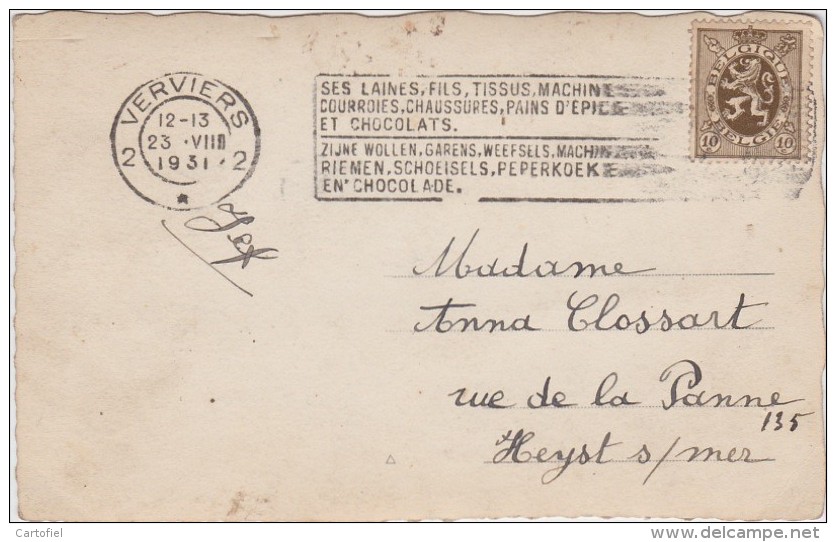 VERVIERS
12-13
23 · VIII
1931
2 2
SES LAINES, FILS, TISSUS, MACHINE
COURROIES, CHAUSSURES, PAINS D'ÉPICE
ET CHOCOLATS.
ZIJNE WOLLEN, GARENS, WEEFSELS, MACHIN
RIEMEN, SCHOEISELS, PEPERKOEKE
EN CHOCOLADE.
BELGIQUE
BELGIË
10 10
Madame
Anna Clossart
rue de la Panne
135
Heyst s/mer
Cartofiel
www.delcampe.net